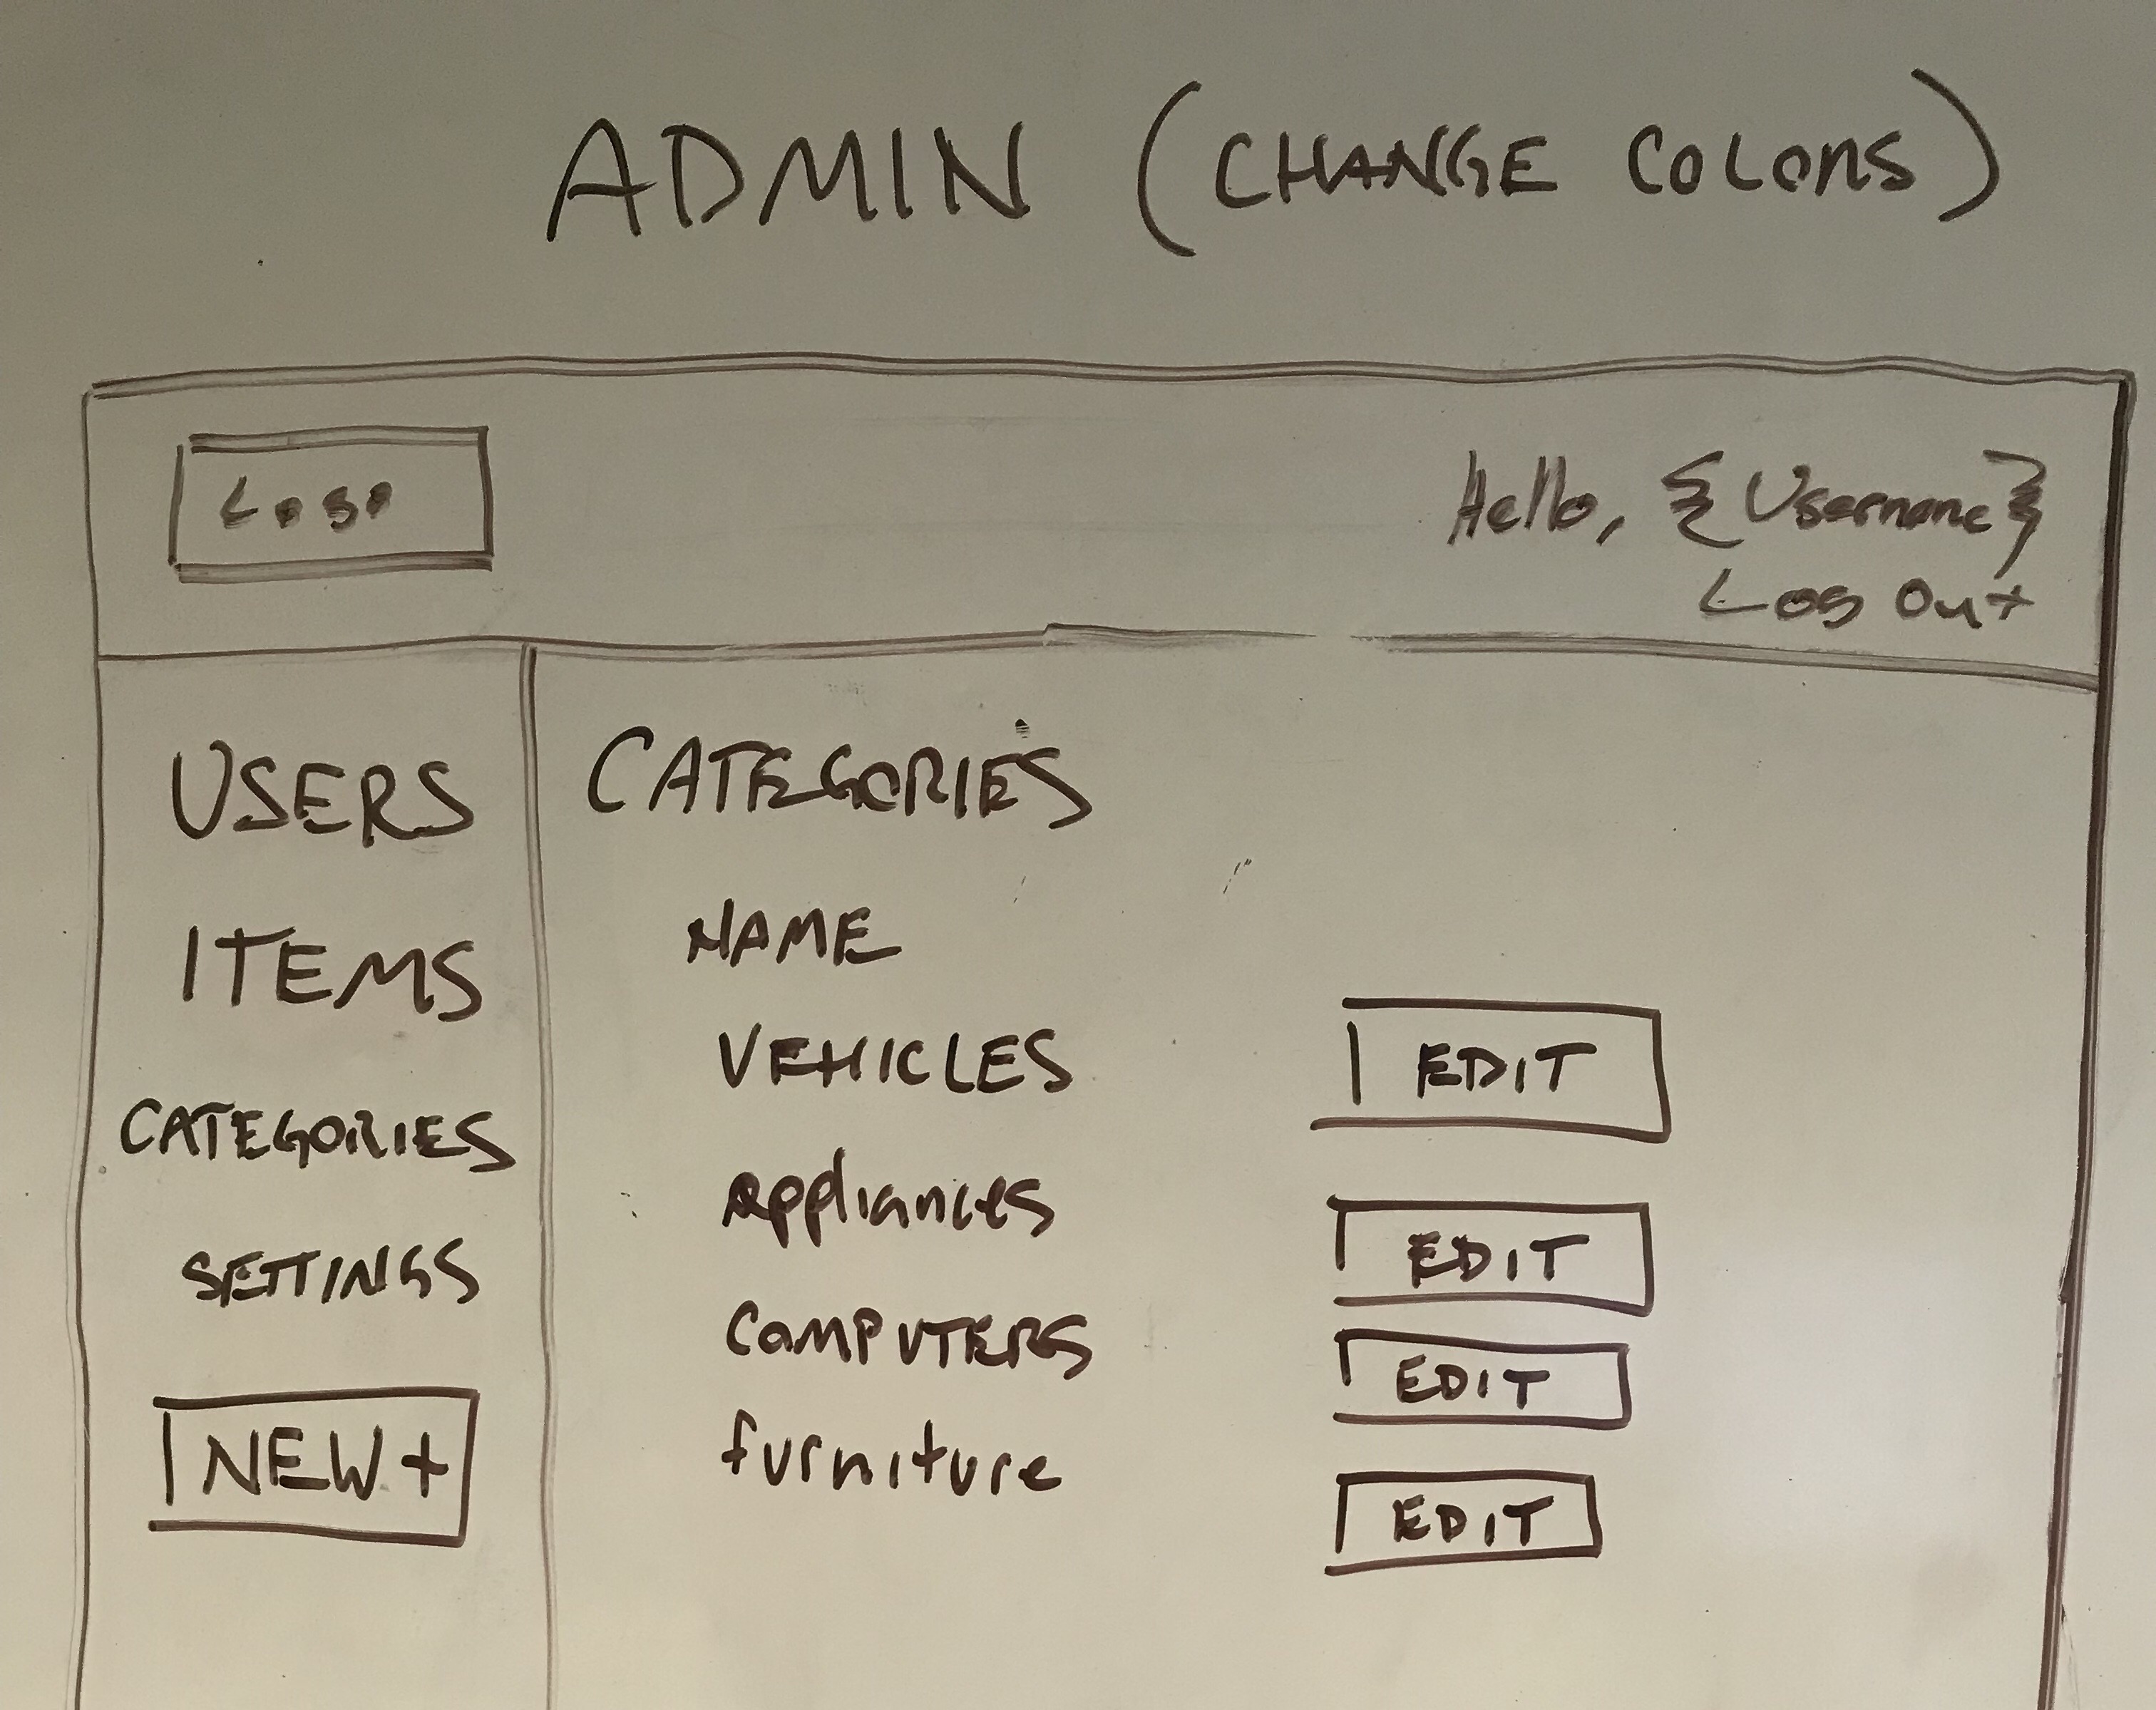 ADMIN (CHANGE COLORS)
LOGO
Hello, {Username}
Log Out
USERS
ITEMS
CATEGORIES
SETTINGS
NEW +
CATEGORIES
NAME
VEHICLES EDIT
Appliances EDIT
COMPUTERS EDIT
furniture EDIT